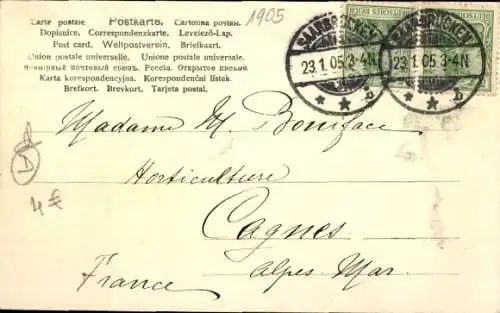 1905
Carte postale. Postkarte. Cartolina postale.
Dopisnice. Correspondenzkarte. Levelező-Lap.
Post card. Weltpostverein. Briefkaart.
Union postale universelle. Unione postale universale.
почтовый союзъ. Россія. Открытое письмо.
Karta korespondencyjna. Korespondenční lístek.
Brefkort. Brevkort. Tarjeta postal.
SAARBRÜCKEN
23.1.05.3-4N.
* * b
SAARBRÜCKEN
23.1.05.3-4N.
* * b
DEUTSCHES REICH
Madame M. Boniface
Horticulture
Cagnes
Alpes Mar.
France
A
4€